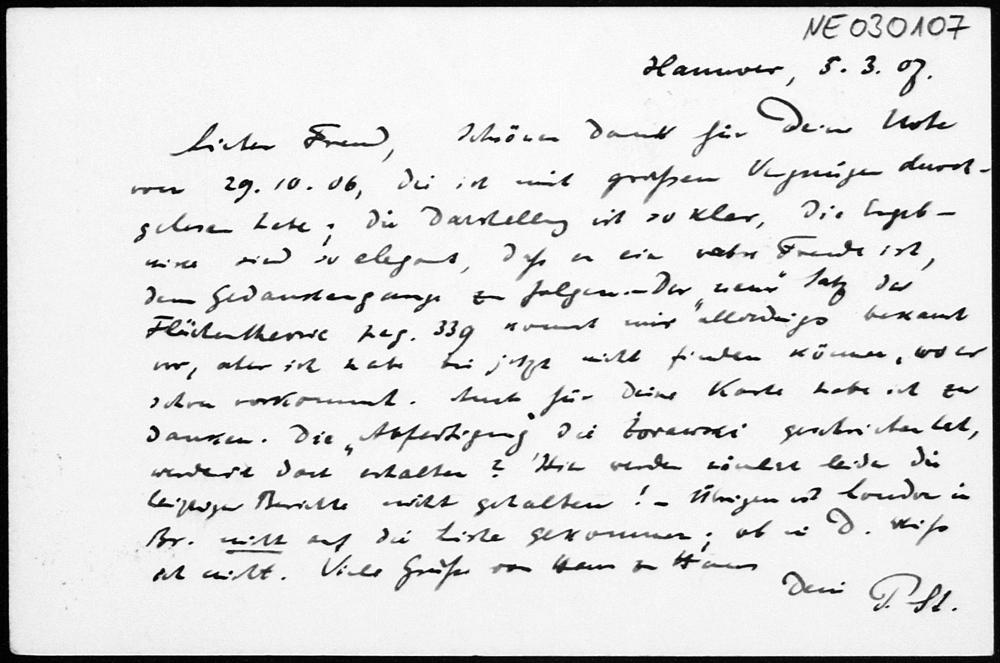 NE030107
Hannover, 5. 3. 07.
Lieber Freund, schönen Dank für Deine Note
vom 29. 10. 06, die ich mit großem Vergnügen durch-
gelesen habe; die Darstellung ist so klar, die Ergeb-
nisse sind so elegant, daß es eine wahre Freude ist,
dem Gedankengange zu folgen. – Der „neue" Satz der
Flächentheorie pag. 339 kommt mir allerdings bekannt
vor, aber ich habe bis jetzt nicht finden können, wo er
schon vorkommt. Auch für Deine Karte habe ich zu
danken. Die „Abfertigung", die Zorawski geschrieben hat,
werde ich doch erhalten? Hier werden nämlich leider die
Leipziger Berichte nicht gehalten! – Übrigens ist London in
Br. nicht auf die Liste gekommen; ob in D. weiß
ich nicht. Viele Grüße von Haus zu Haus
Dein P. St.